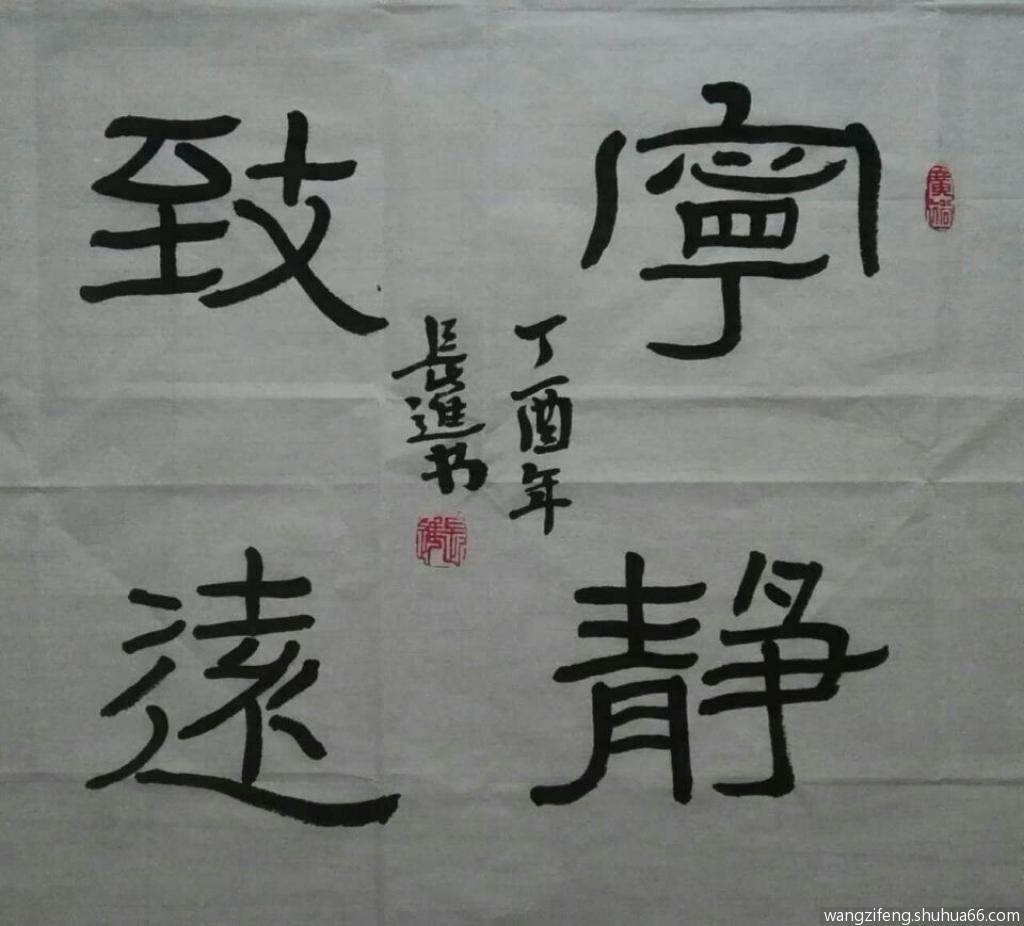 寧靜
致遠
丁酉年
長進书
wangzifeng.shuhua66.com